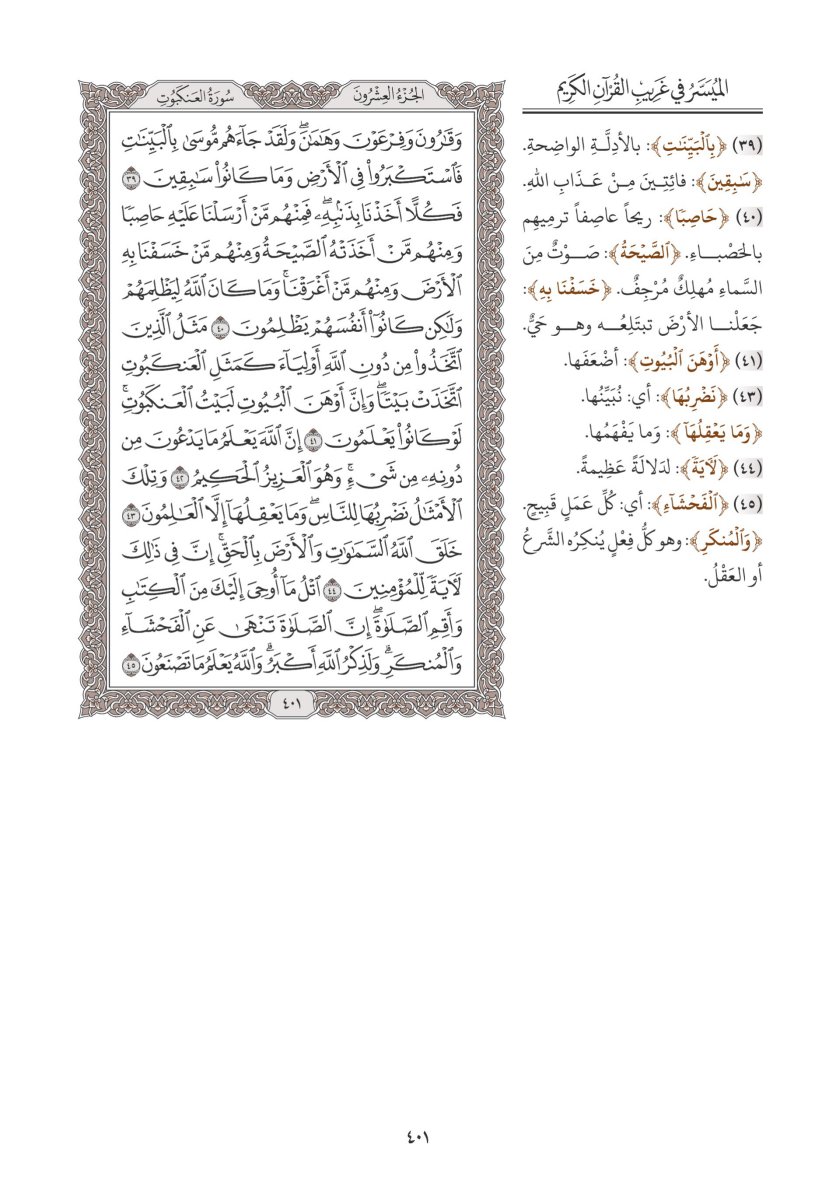 الميسر في غريب القرآن الكريم
(٣٩) ﴿بِٱلْبَيِّنَٰتِ﴾: بالأدلَّـةِ الواضِحةِ.
﴿سَٰبِقِينَ﴾: فائِتِـينَ مِـنْ عَـذَابِ اللهِ.
(٤٠) ﴿حَاصِبًا﴾: ريحاً عاصِفاً ترمِيهِم
بالحَصْبـاءِ. ﴿ٱلصَّيْحَةُ﴾: صَـوْتٌ مِنَ
السَّماءِ مُهلِكٌ مُرْجِفٌ. ﴿خَسَفْنَا بِهِ﴾:
جَعَلْنـا الأرْضَ تبتَلِعُـه وهـو حَيٌّ.
(٤١) ﴿أَوْهَنَ ٱلْبُيُوتِ﴾: أضْعَفَها.
(٤٣) ﴿نَضْرِبُهَا﴾: أي: نُبَيِّنُها.
﴿وَمَا يَعْقِلُهَآ﴾: وَما يَفْهَمُها.
(٤٤) ﴿لَأٓيَةً﴾: لدَلالَةً عَظِيمةً.
(٤٥) ﴿ٱلْفَحْشَآءِ﴾: أي: كُلِّ عَمَلٍ قَبِيحٍ.
﴿وَٱلْمُنكَرِ﴾: وهو كلُّ فِعْلٍ يُنكِرُه الشَّرعُ
أو العَقْلُ.
الجُزءُ العِشْرُونَ
سُورَةُ العَنكَبُوتِ
وَقَٰرُونَ وَفِرْعَوْنَ وَهَٰمَٰنَ ۖ وَلَقَدْ جَآءَهُم مُّوسَىٰ بِٱلْبَيِّنَٰتِ
فَٱسْتَكْبَرُوا۟ فِى ٱلْأَرْضِ وَمَا كَانُوا۟ سَٰبِقِينَ ٣٩
فَكُلًّا أَخَذْنَا بِذَنۢبِهِۦ ۖ فَمِنْهُم مَّنْ أَرْسَلْنَا عَلَيْهِ حَاصِبًا
وَمِنْهُم مَّنْ أَخَذَتْهُ ٱلصَّيْحَةُ وَمِنْهُم مَّنْ خَسَفْنَا بِهِ
ٱلْأَرْضَ وَمِنْهُم مَّنْ أَغْرَقْنَا ۚ وَمَا كَانَ ٱللَّهُ لِيَظْلِمَهُمْ
وَلَٰكِن كَانُوٓا۟ أَنفُسَهُمْ يَظْلِمُونَ ٤٠ مَثَلُ ٱلَّذِينَ
ٱتَّخَذُوا۟ مِن دُونِ ٱللَّهِ أَوْلِيَآءَ كَمَثَلِ ٱلْعَنكَبُوتِ
ٱتَّخَذَتْ بَيْتًا ۖ وَإِنَّ أَوْهَنَ ٱلْبُيُوتِ لَبَيْتُ ٱلْعَنكَبُوتِ ۖ
لَوْ كَانُوا۟ يَعْلَمُونَ ٤١ إِنَّ ٱللَّهَ يَعْلَمُ مَا يَدْعُونَ مِن
دُونِهِۦ مِن شَىْءٍ ۚ وَهُوَ ٱلْعَزِيزُ ٱلْحَكِيمُ ٤٢ وَتِلْكَ
ٱلْأَمْثَٰلُ نَضْرِبُهَا لِلنَّاسِ ۖ وَمَا يَعْقِلُهَآ إِلَّا ٱلْعَٰلِمُونَ ٤٣
خَلَقَ ٱللَّهُ ٱلسَّمَٰوَٰتِ وَٱلْأَرْضَ بِٱلْحَقِّ ۚ إِنَّ فِى ذَٰلِكَ
لَأٓيَةً لِّلْمُؤْمِنِينَ ٤٤ ٱتْلُ مَآ أُوحِىَ إِلَيْكَ مِنَ ٱلْكِتَٰبِ
وَأَقِمِ ٱلصَّلَوٰةَ ۖ إِنَّ ٱلصَّلَوٰةَ تَنْهَىٰ عَنِ ٱلْفَحْشَآءِ
وَٱلْمُنكَرِ ۗ وَلَذِكْرُ ٱللَّهِ أَكْبَرُ ۗ وَٱللَّهُ يَعْلَمُ مَا تَصْنَعُونَ ٤٥
٤٠١
٤٠١